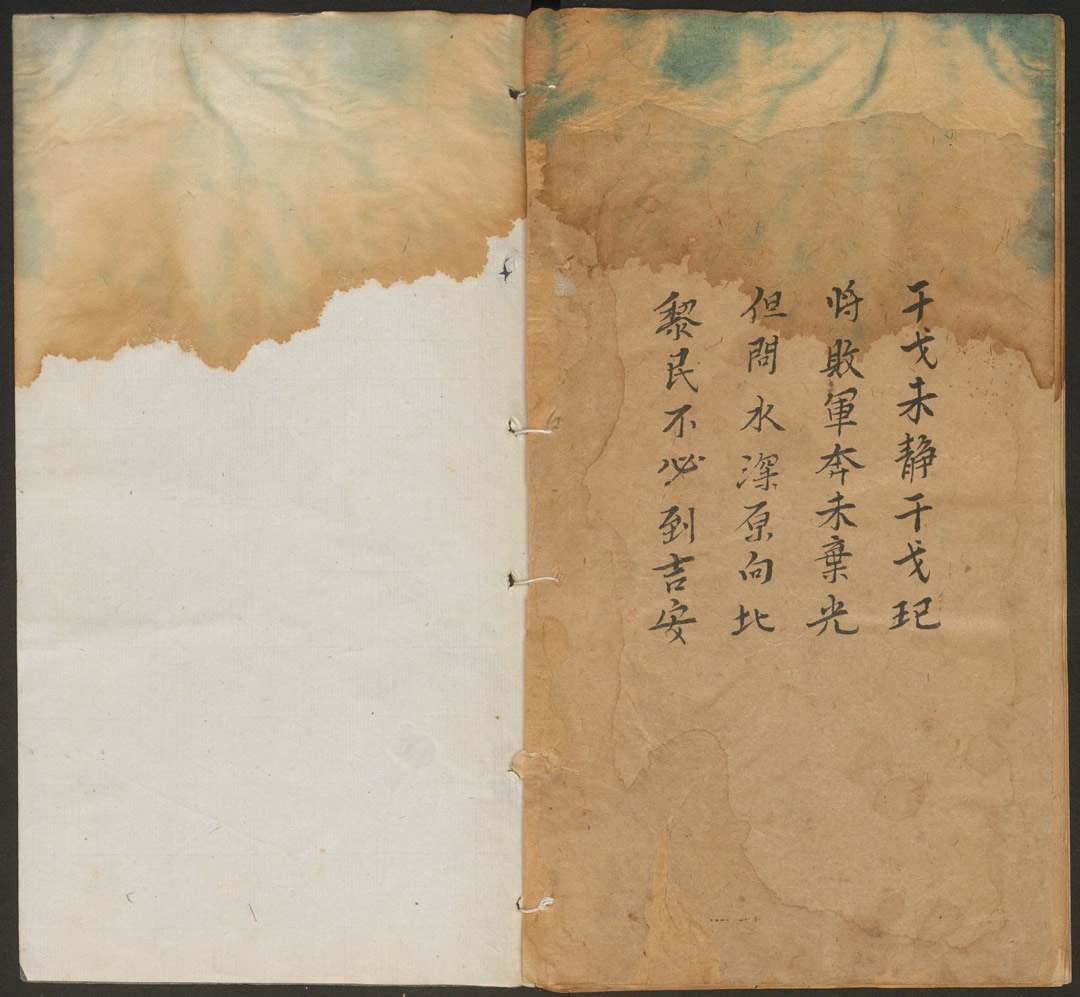 干戈未静干戈玘
将敗軍奔未棄光
但問水深原向北
黎民不必到吉安